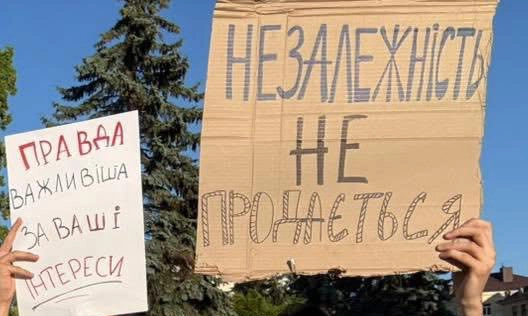 ПРАВДА
ВАЖЛИВІША
ЗА ВАШІ
ІНТЕРЕСИ
НЕЗАЛЕЖНІСТЬ
НЕ
ПРОДАЄТЬСЯ